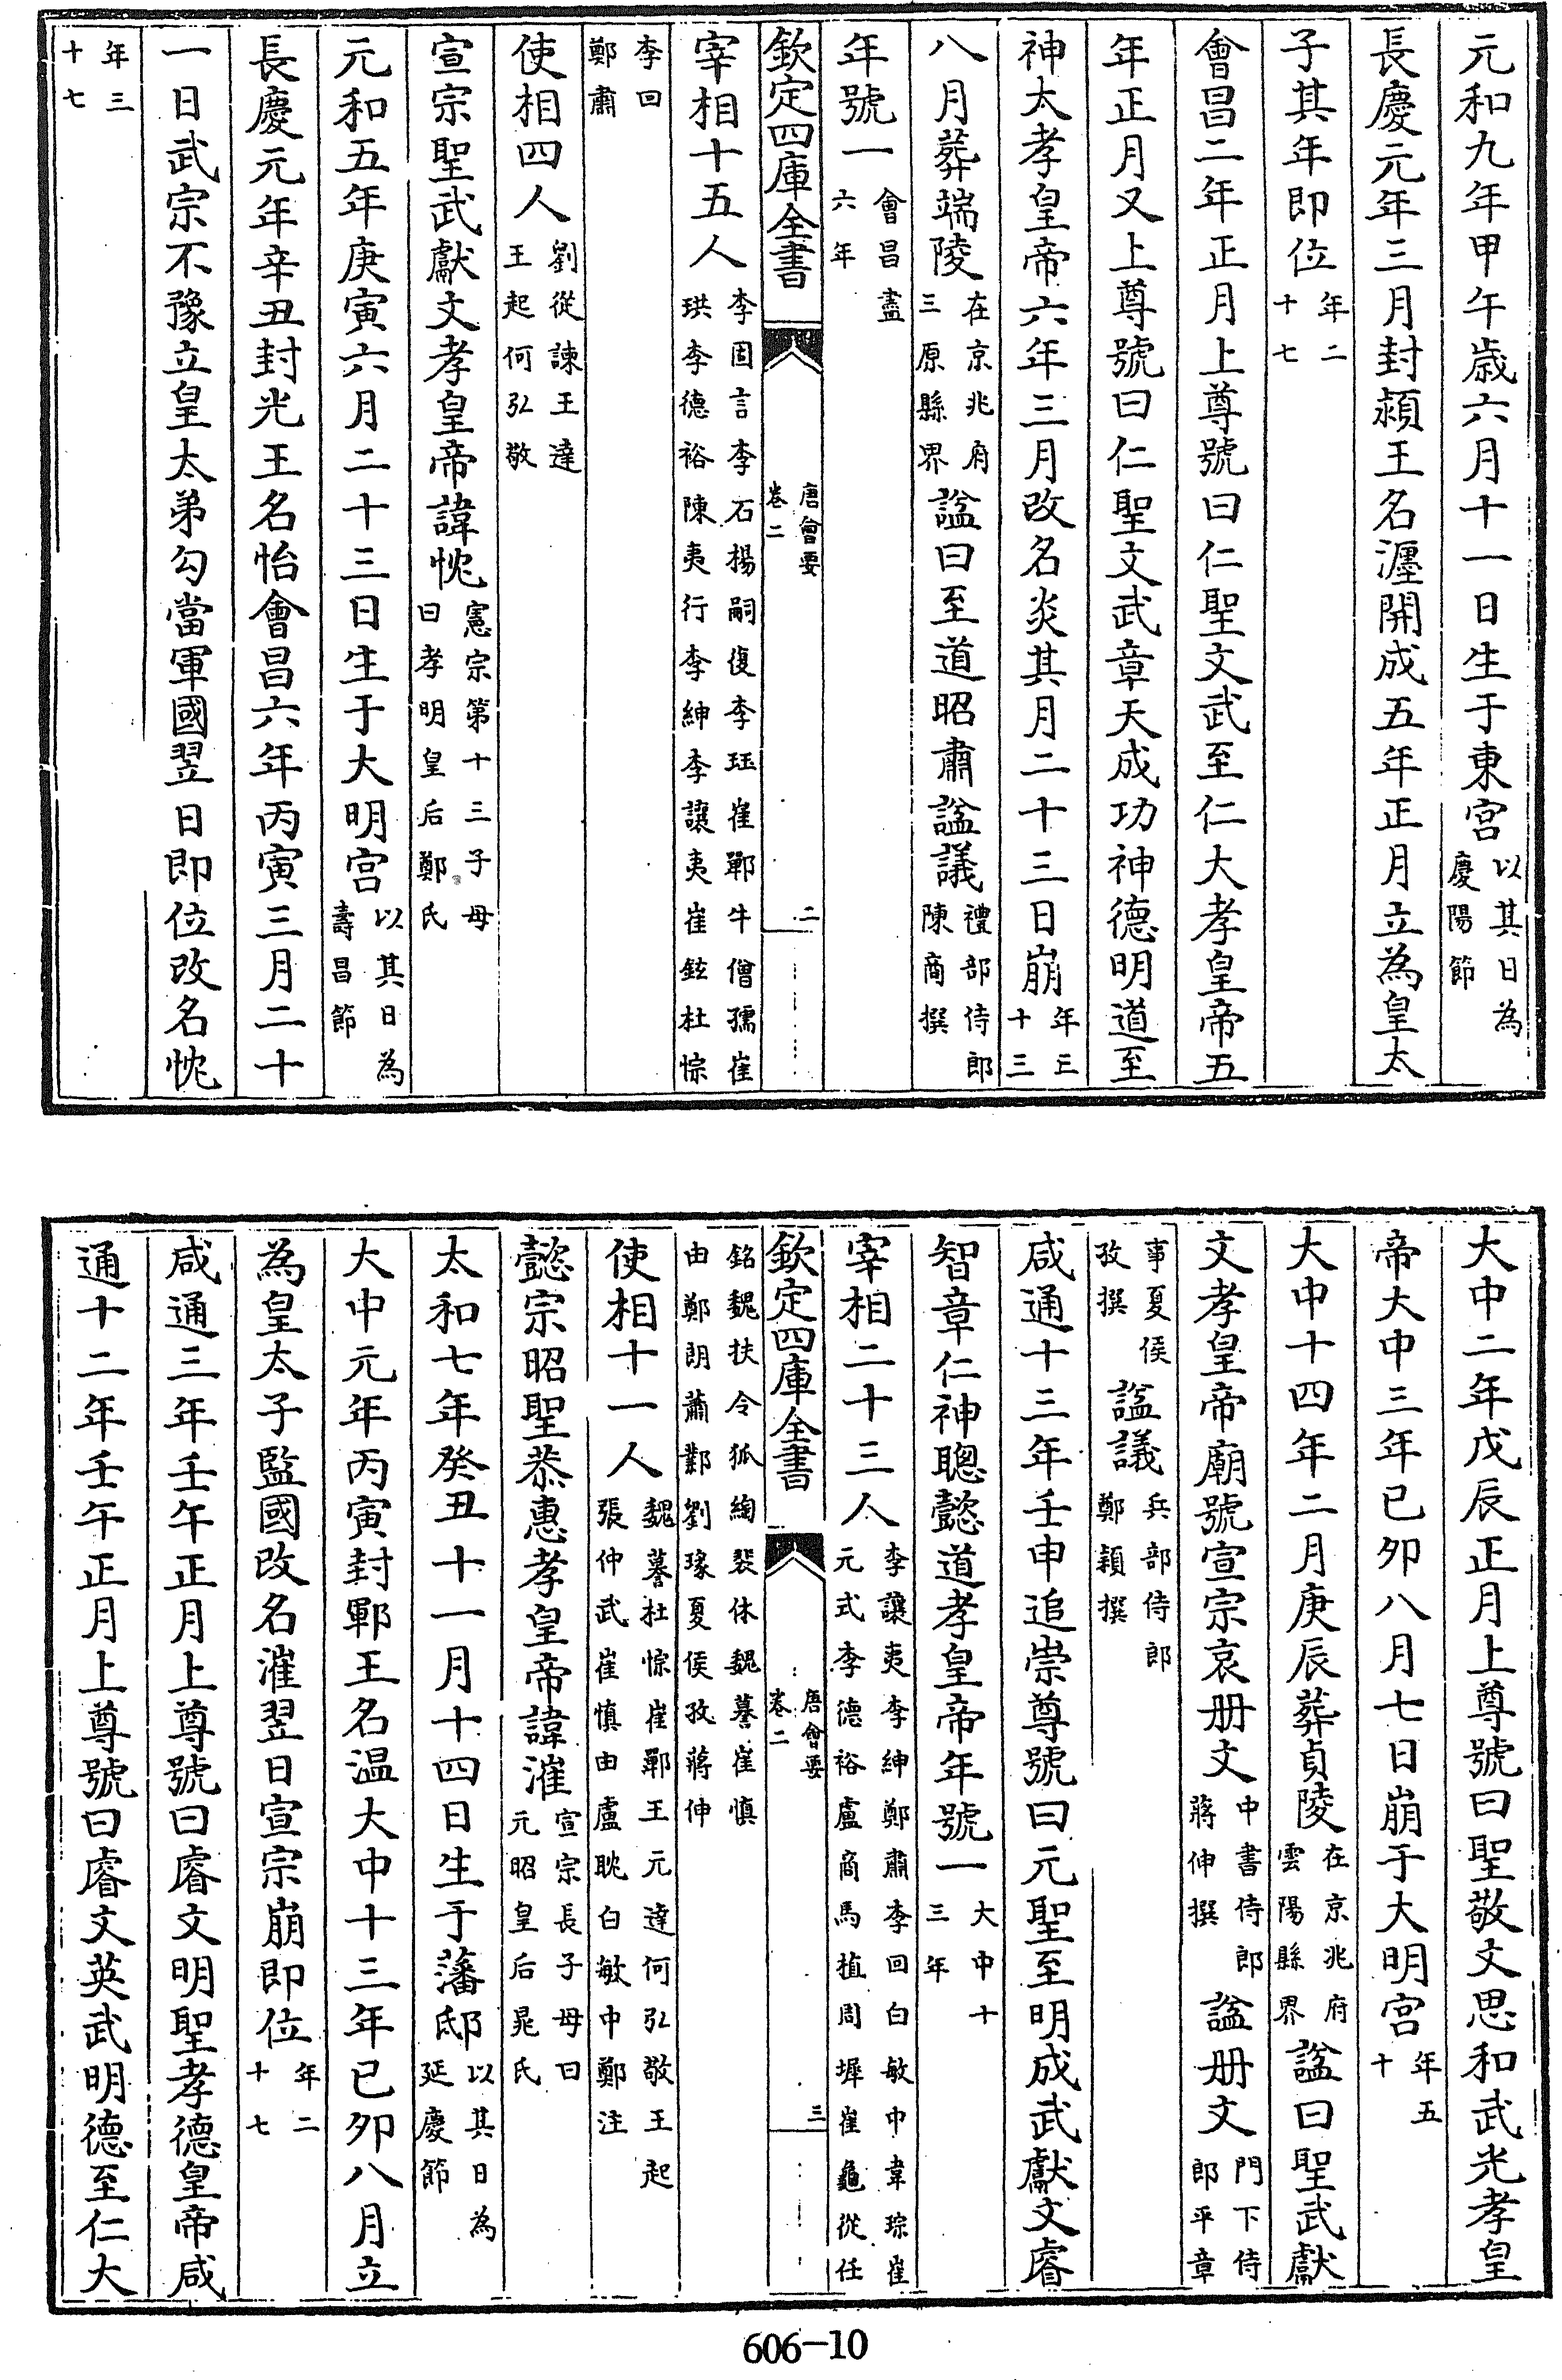 元和九年甲午歲六月十一日生于東宮以其日為慶陽節
長慶元年三月封潁王名瀍開成五年正月立為皇太
子其年即位年二十七
會昌二年正月上尊號曰仁聖文武至仁大孝皇帝五
年正月又上尊號曰仁聖文武章天成功神德明道至
神太孝皇帝六年三月改名炎其月二十三日崩年三十三
八月葬端陵在京兆府三原縣界諡曰至道昭肅諡議禮部侍郎陳商撰
年號一會昌盡六年
欽定四庫全書
唐會要
卷二
二
宰相十五人李固言李石楊嗣復李珏崔鄲牛僧孺崔珙李德裕陳夷行李紳李讓夷崔鉉杜悰
李回鄭肅
使相四人劉從諫王達王起何弘敬
宣宗聖武獻文孝皇帝諱忱憲宗第十三子母曰孝明皇后鄭氏
元和五年庚寅六月二十三日生于大明宮以其日為壽昌節
長慶元年辛丑封光王名怡會昌六年丙寅三月二十
一日武宗不豫立皇太弟勾當軍國翌日即位改名忱
年三十七
大中二年戊辰正月上尊號曰聖敬文思和武光孝皇
帝大中三年已卯八月七日崩于大明宮年五十
大中十四年二月庚辰葬貞陵在京兆府雲陽縣界諡曰聖武獻
文孝皇帝廟號宣宗哀册文中書侍郎蔣伸撰諡册文門下侍郎平章
事夏侯孜撰諡議兵部侍郎鄭穎撰
咸通十三年壬申追崇尊號曰元聖至明成武獻文睿
智章仁神聰懿道孝皇帝年號一大中十三年
宰相二十三人李讓夷李紳鄭肅李回白敏中韋琮崔元式李德裕盧商馬植周墀崔龜從任
欽定四庫全書
唐會要
卷二
三
銘魏扶令狐綯裴休魏謩崔慎由鄭朗蕭鄴劉瑑夏侯孜蔣伸
使相十一人魏謩杜悰崔鄲王元逵何弘敬王起張仲武崔慎由盧耽白敏中鄭注
懿宗昭聖恭惠孝皇帝諱漼宣宗長子母曰元昭皇后晁氏
太和七年癸丑十一月十四日生于藩邸以其日為延慶節
大中元年丙寅封鄆王名温大中十三年已卯八月立
為皇太子監國改名漼翌日宣宗崩即位年二十七
咸通三年壬午正月上尊號曰睿文明聖孝德皇帝咸
通十二年壬午正月上尊號曰睿文英武明德至仁大
606-10